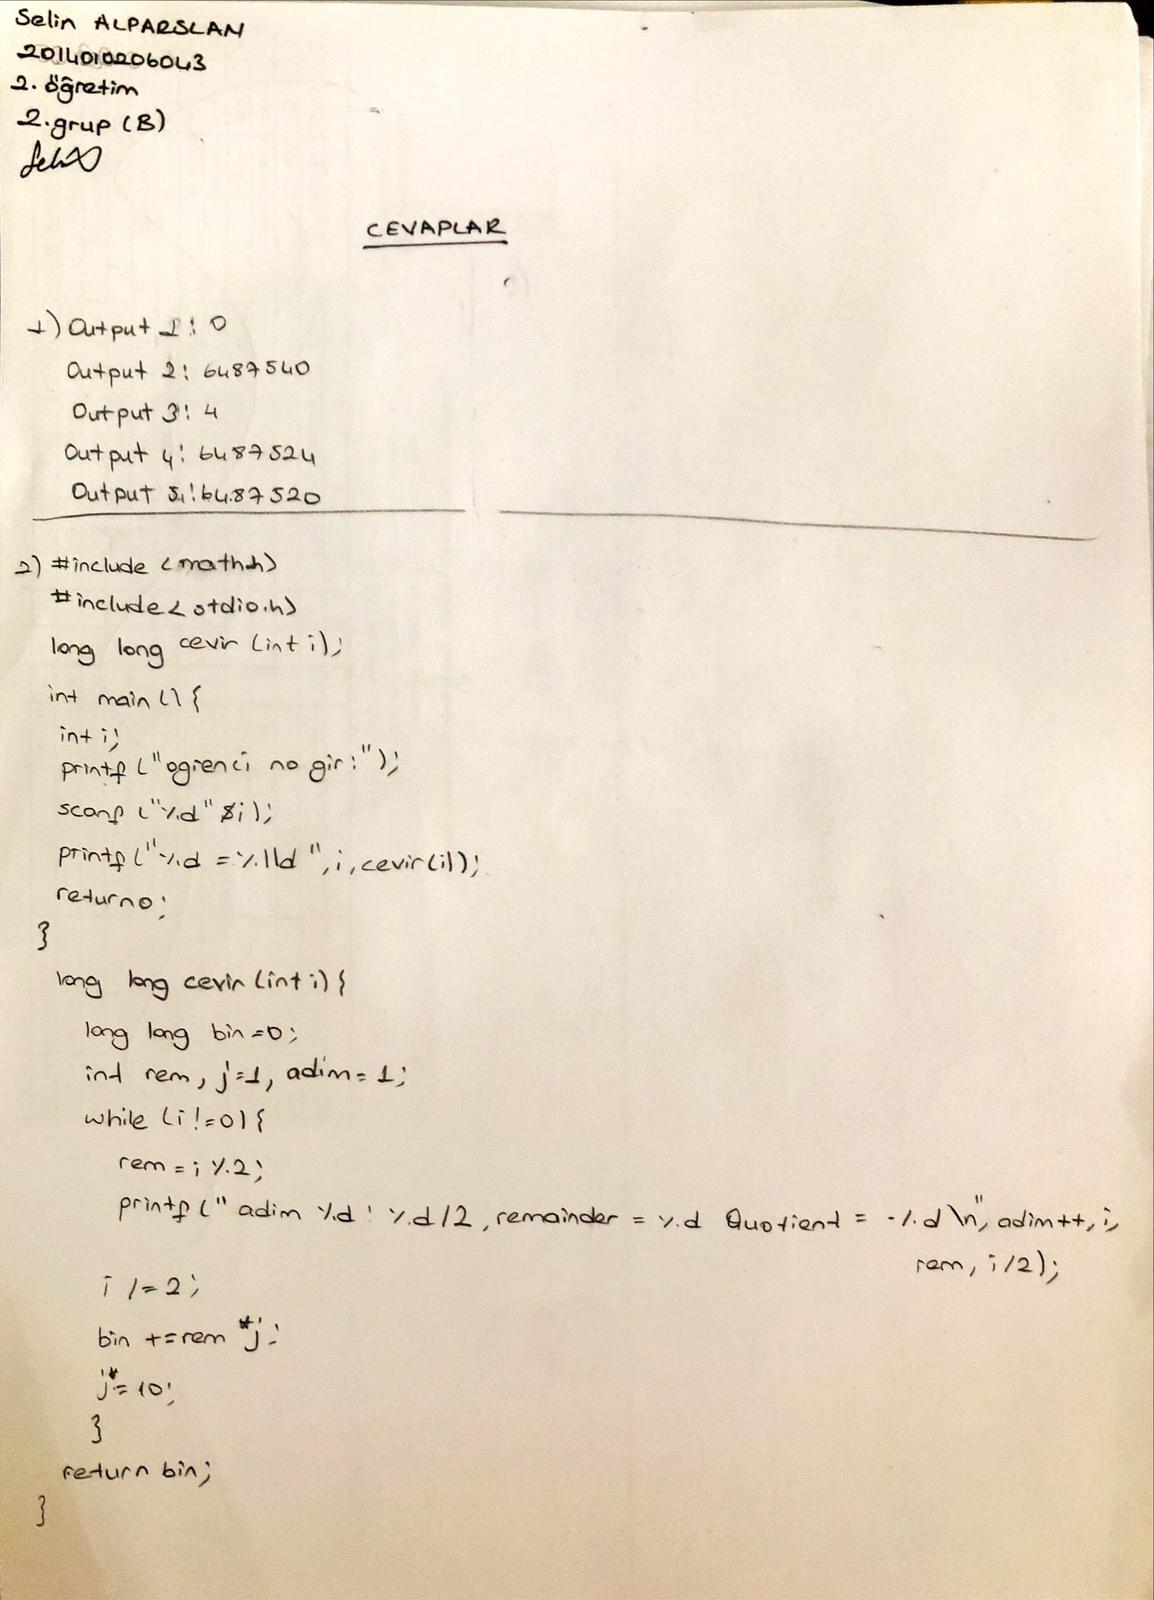 Selin ALPARSLAN
2014010206043
2. öğretim
2. grup (B)
CEVAPLAR
1) Output 1: 0
Output 2: 6487540
Output 3: 4
Output 4: 6487524
Output 5: 6487520
2) #include <math.h>
#include <stdio.h>
long long cevir (int i);
int main () {
int i;
printf ("ogrenci no gir:");
scanf ("%d" &i);
printf ("%d = %lld ", i, cevir(i));
return 0;
}
long long cevir (int i) {
long long bin = 0;
int rem, j=1, adim = 1;
while (i != 0) {
rem = i %2;
printf (" adim %d: %d/2, remainder = %d Quotient = %d \n", adim++, i,
rem, i/2);
i /= 2;
bin += rem *j;
j*= 10;
}
return bin;
}